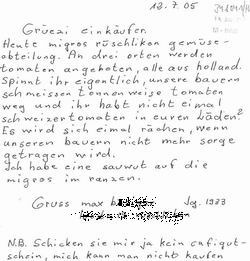 12.7.05
Grüezi einkäufer.
Heute migros rüschlikon gemüse-
abteilung. An drei orten werden
tomaten angeboten, alle aus holland.
Spinnt ihr eigentlich, unsere bauern
schmeissen tonnenweise tomaten
weg und ihr habt nicht einmal
schweizertomaten in euren läden?
Es wird sich einmal rächen, wenn
unseren bauern nicht mehr sorge
getragen wird.
Ich habe eine sauwut auf die
migros im ranzen.
Gruss max Jg. 1933
N.B. Schicken sie mir ja kein cafi-gut-
schein, mich kann man nicht kaufen